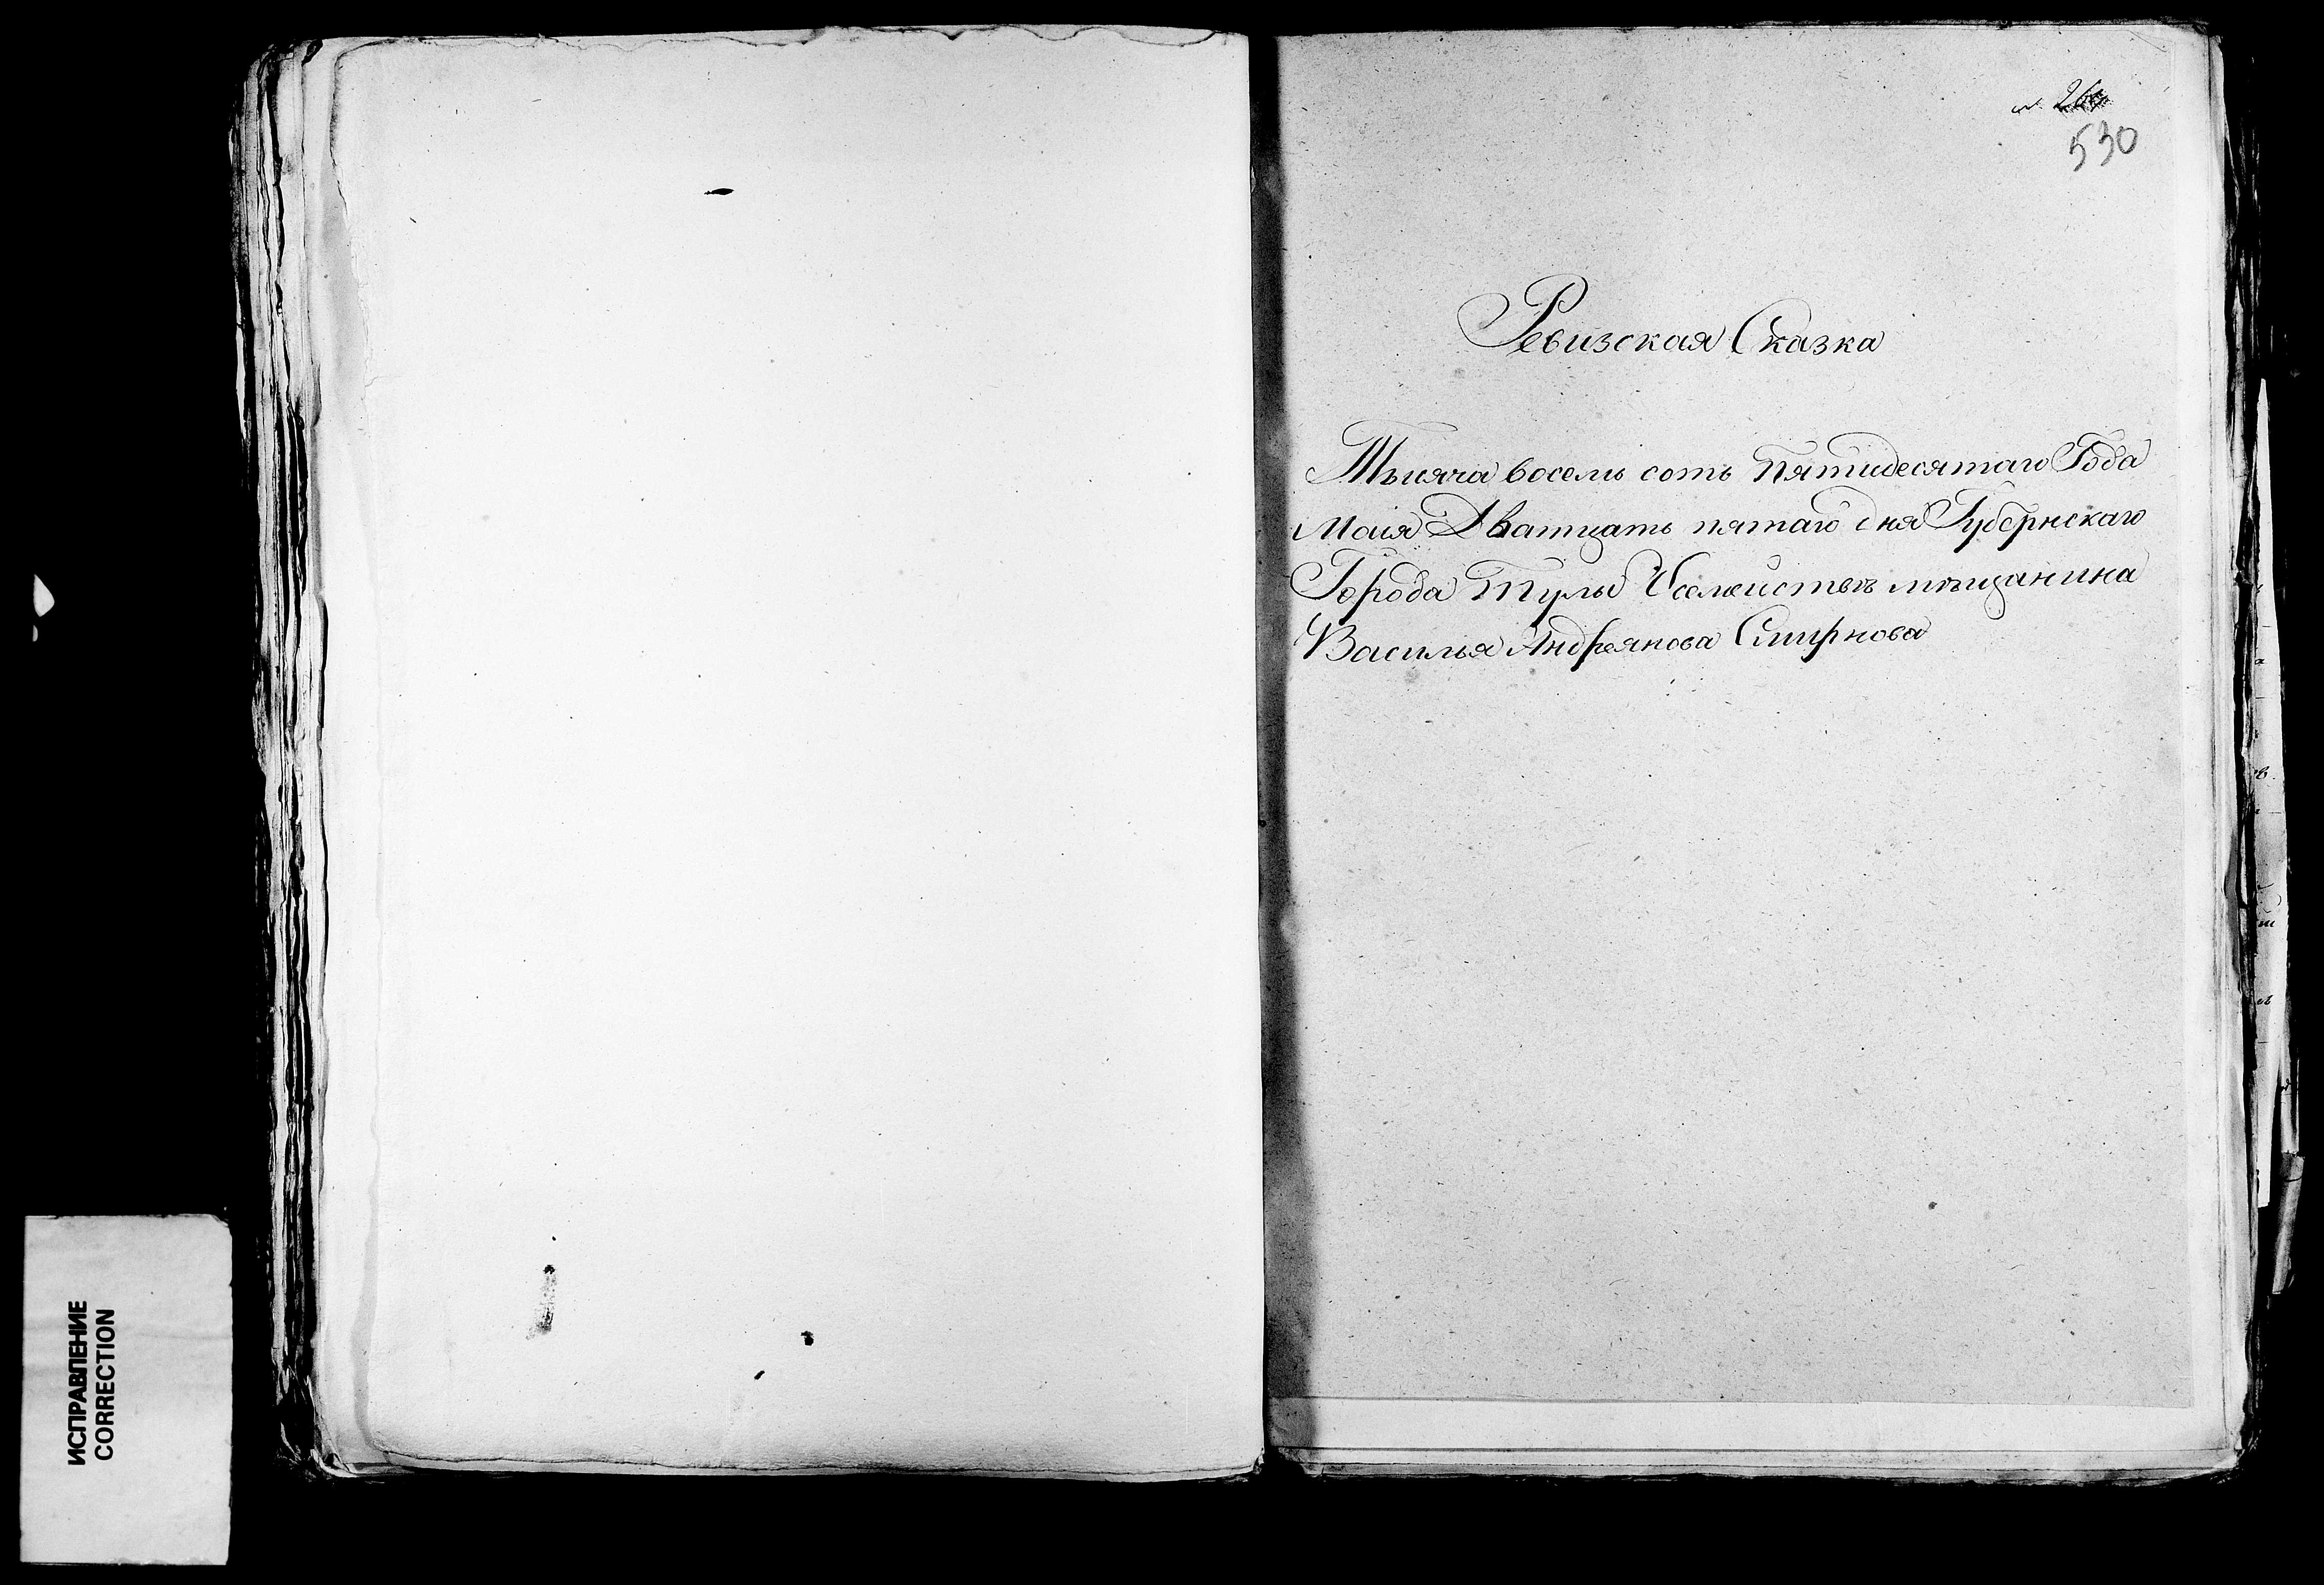 530
Ревизская Сказка
Тысяча восемь сотъ Пятидесятаго Года
Маія Дватцать пятаго дня Губернскаго
Города Тулы О семействѣ мѣщанина
Василья Андреянова Смирнова
ИСПРАВЛЕНИЕ
CORRECTION